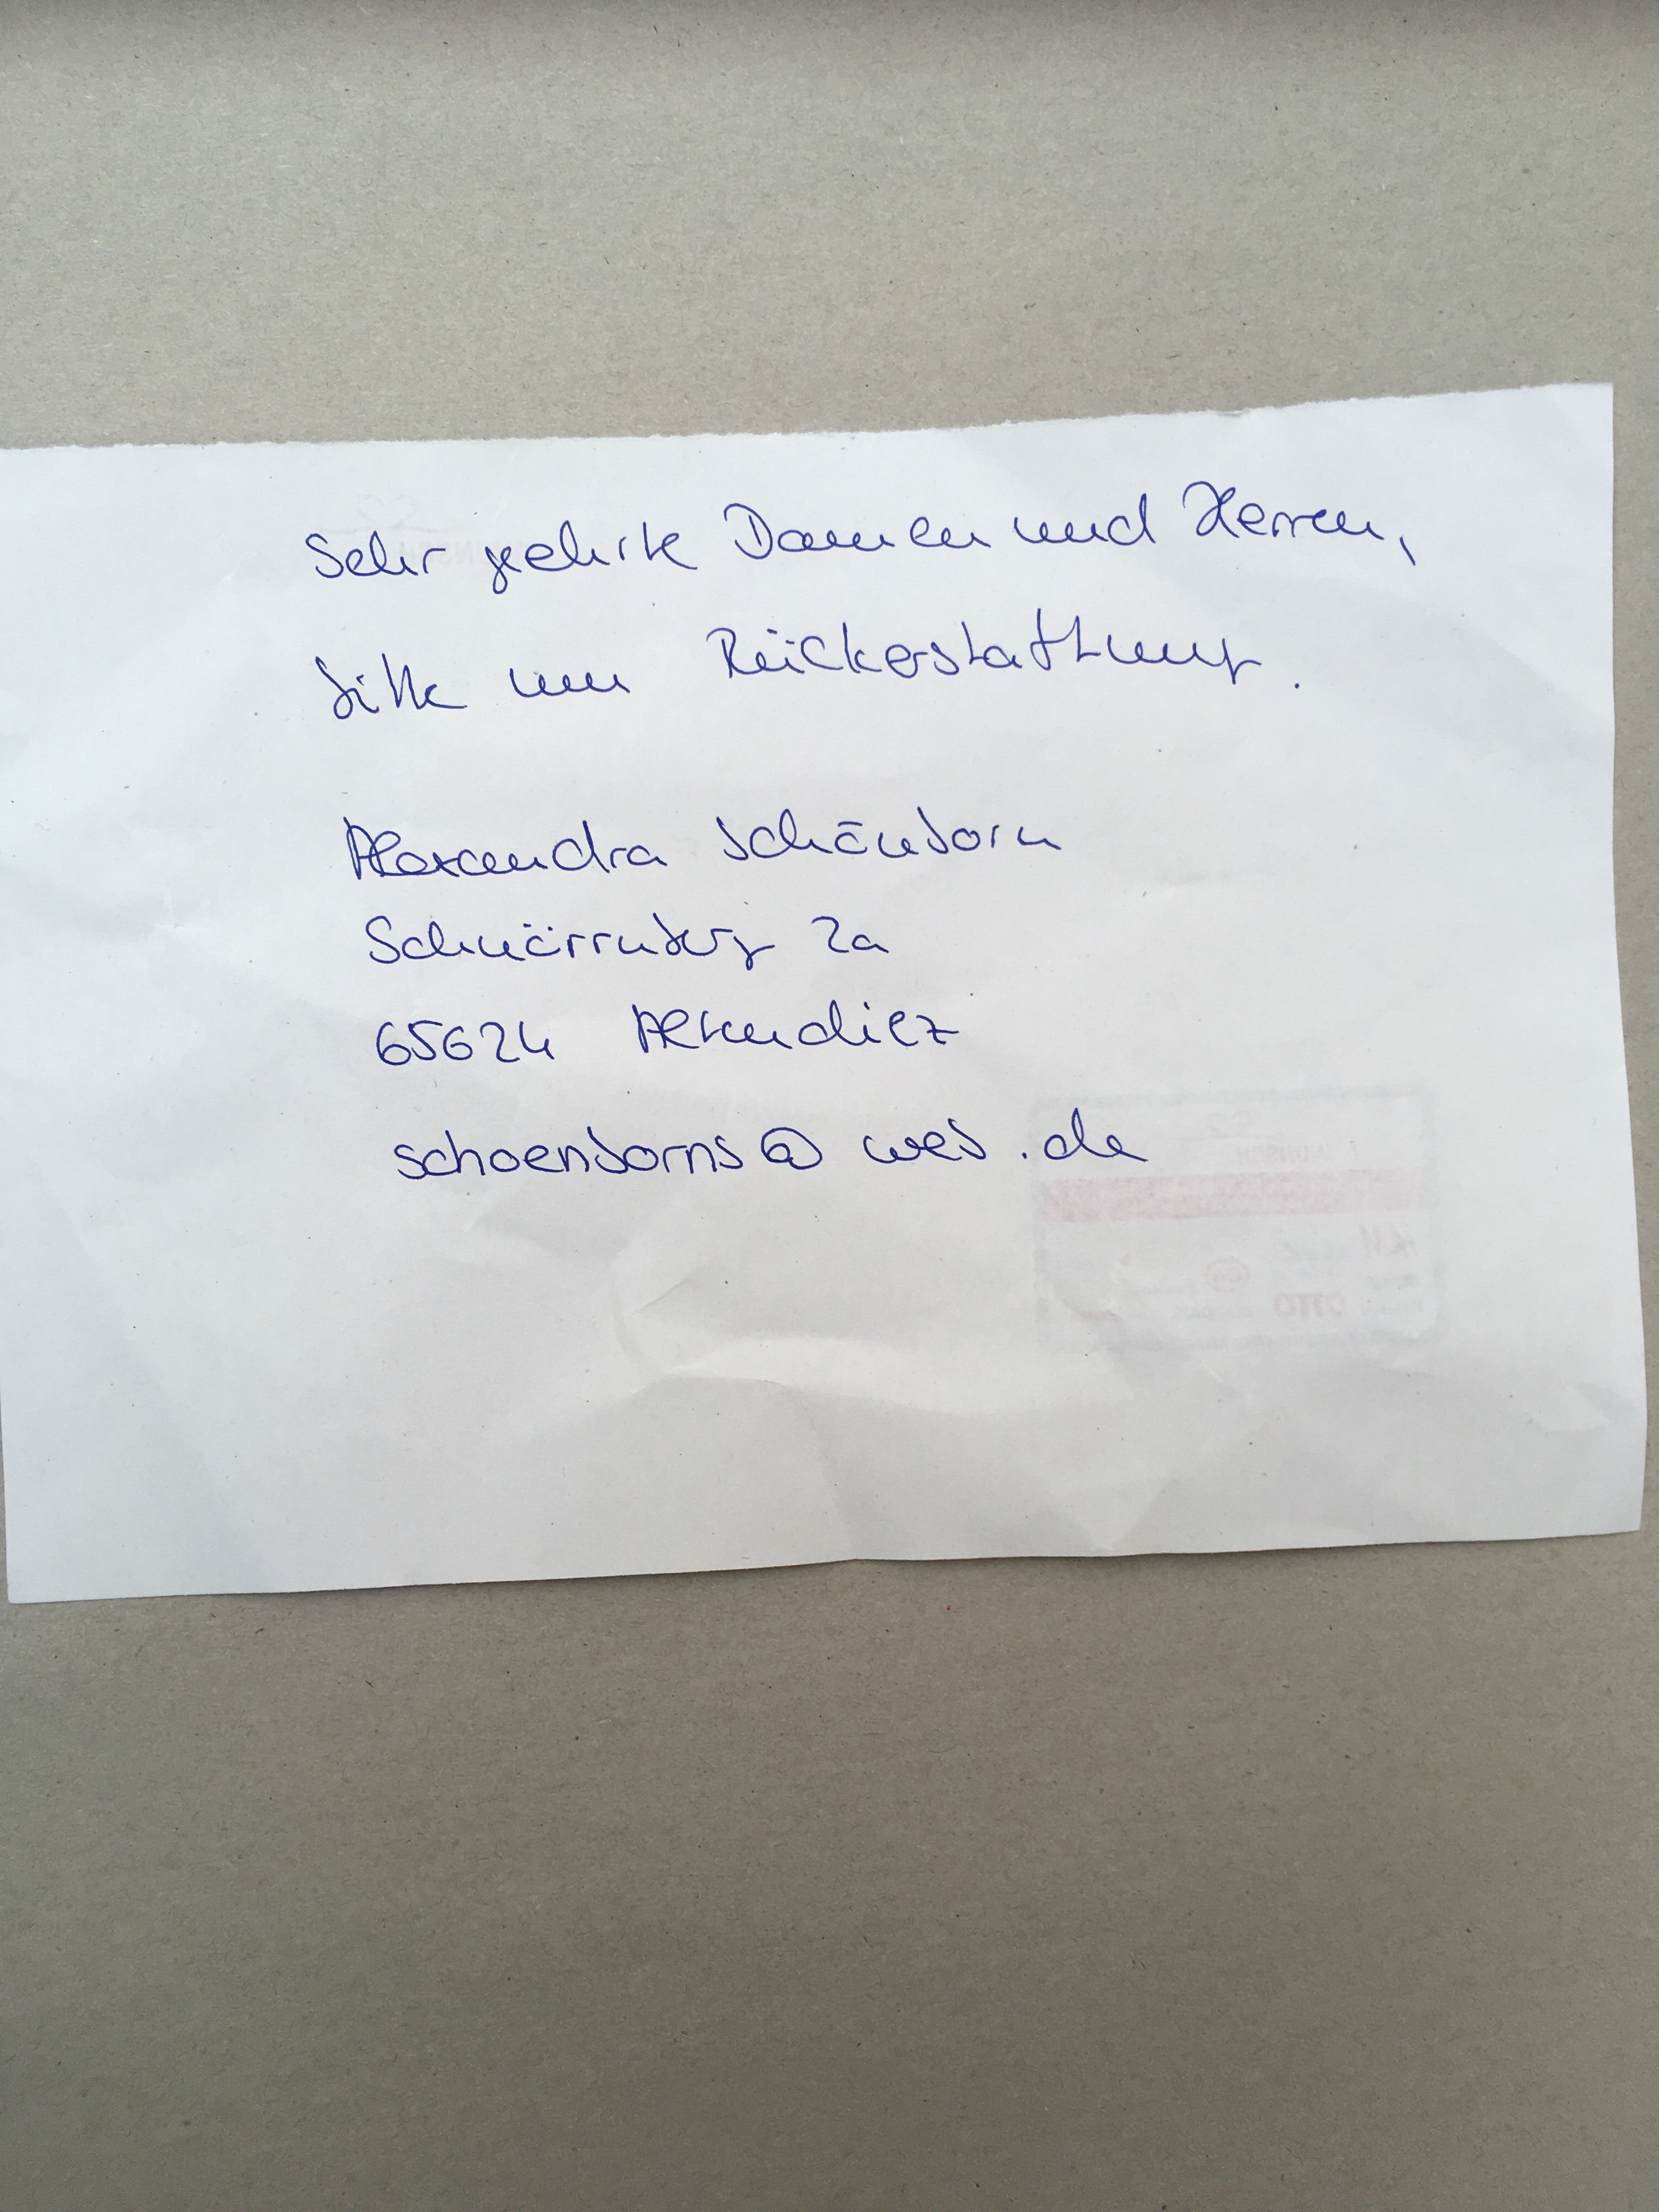 Sehr geehrte Damen und Herren,
bitte um Rückerstattung.
Alexandra Schönborn
2a
65624 Altendiez
schoenborns@web.de
OTTO